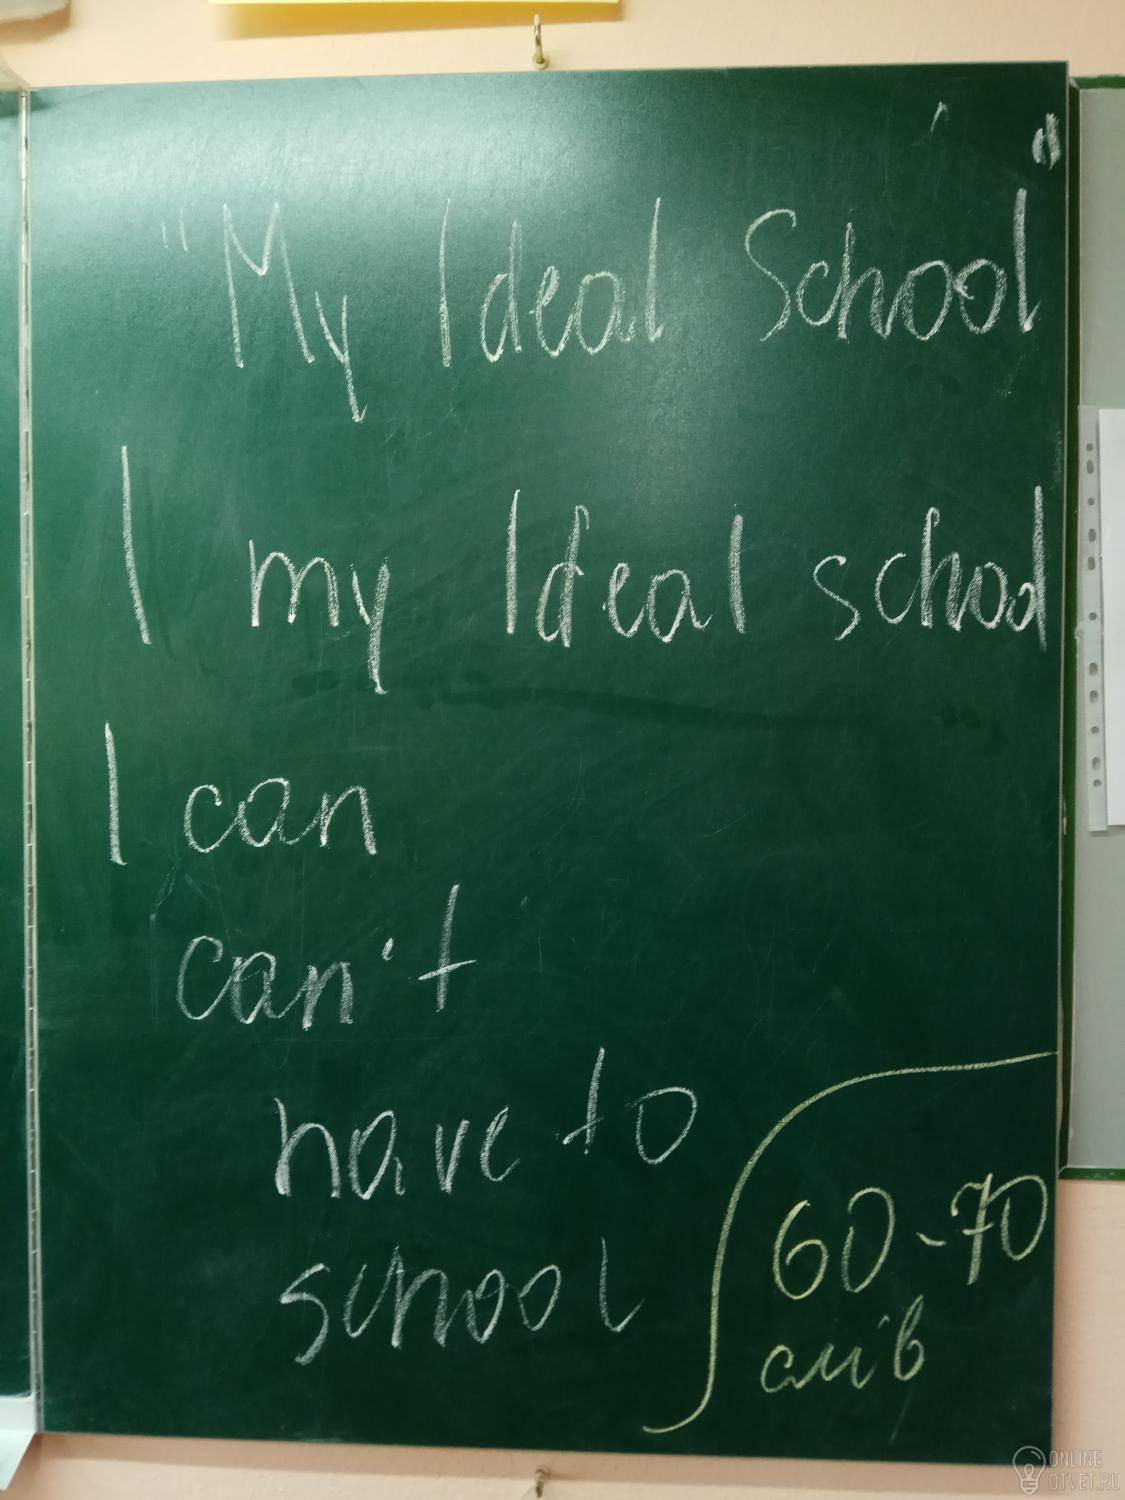 "My Ideal School"
I my Ideal school
I can
can't
have to
school
60-70
слів
ONLINE
OTVET.RU